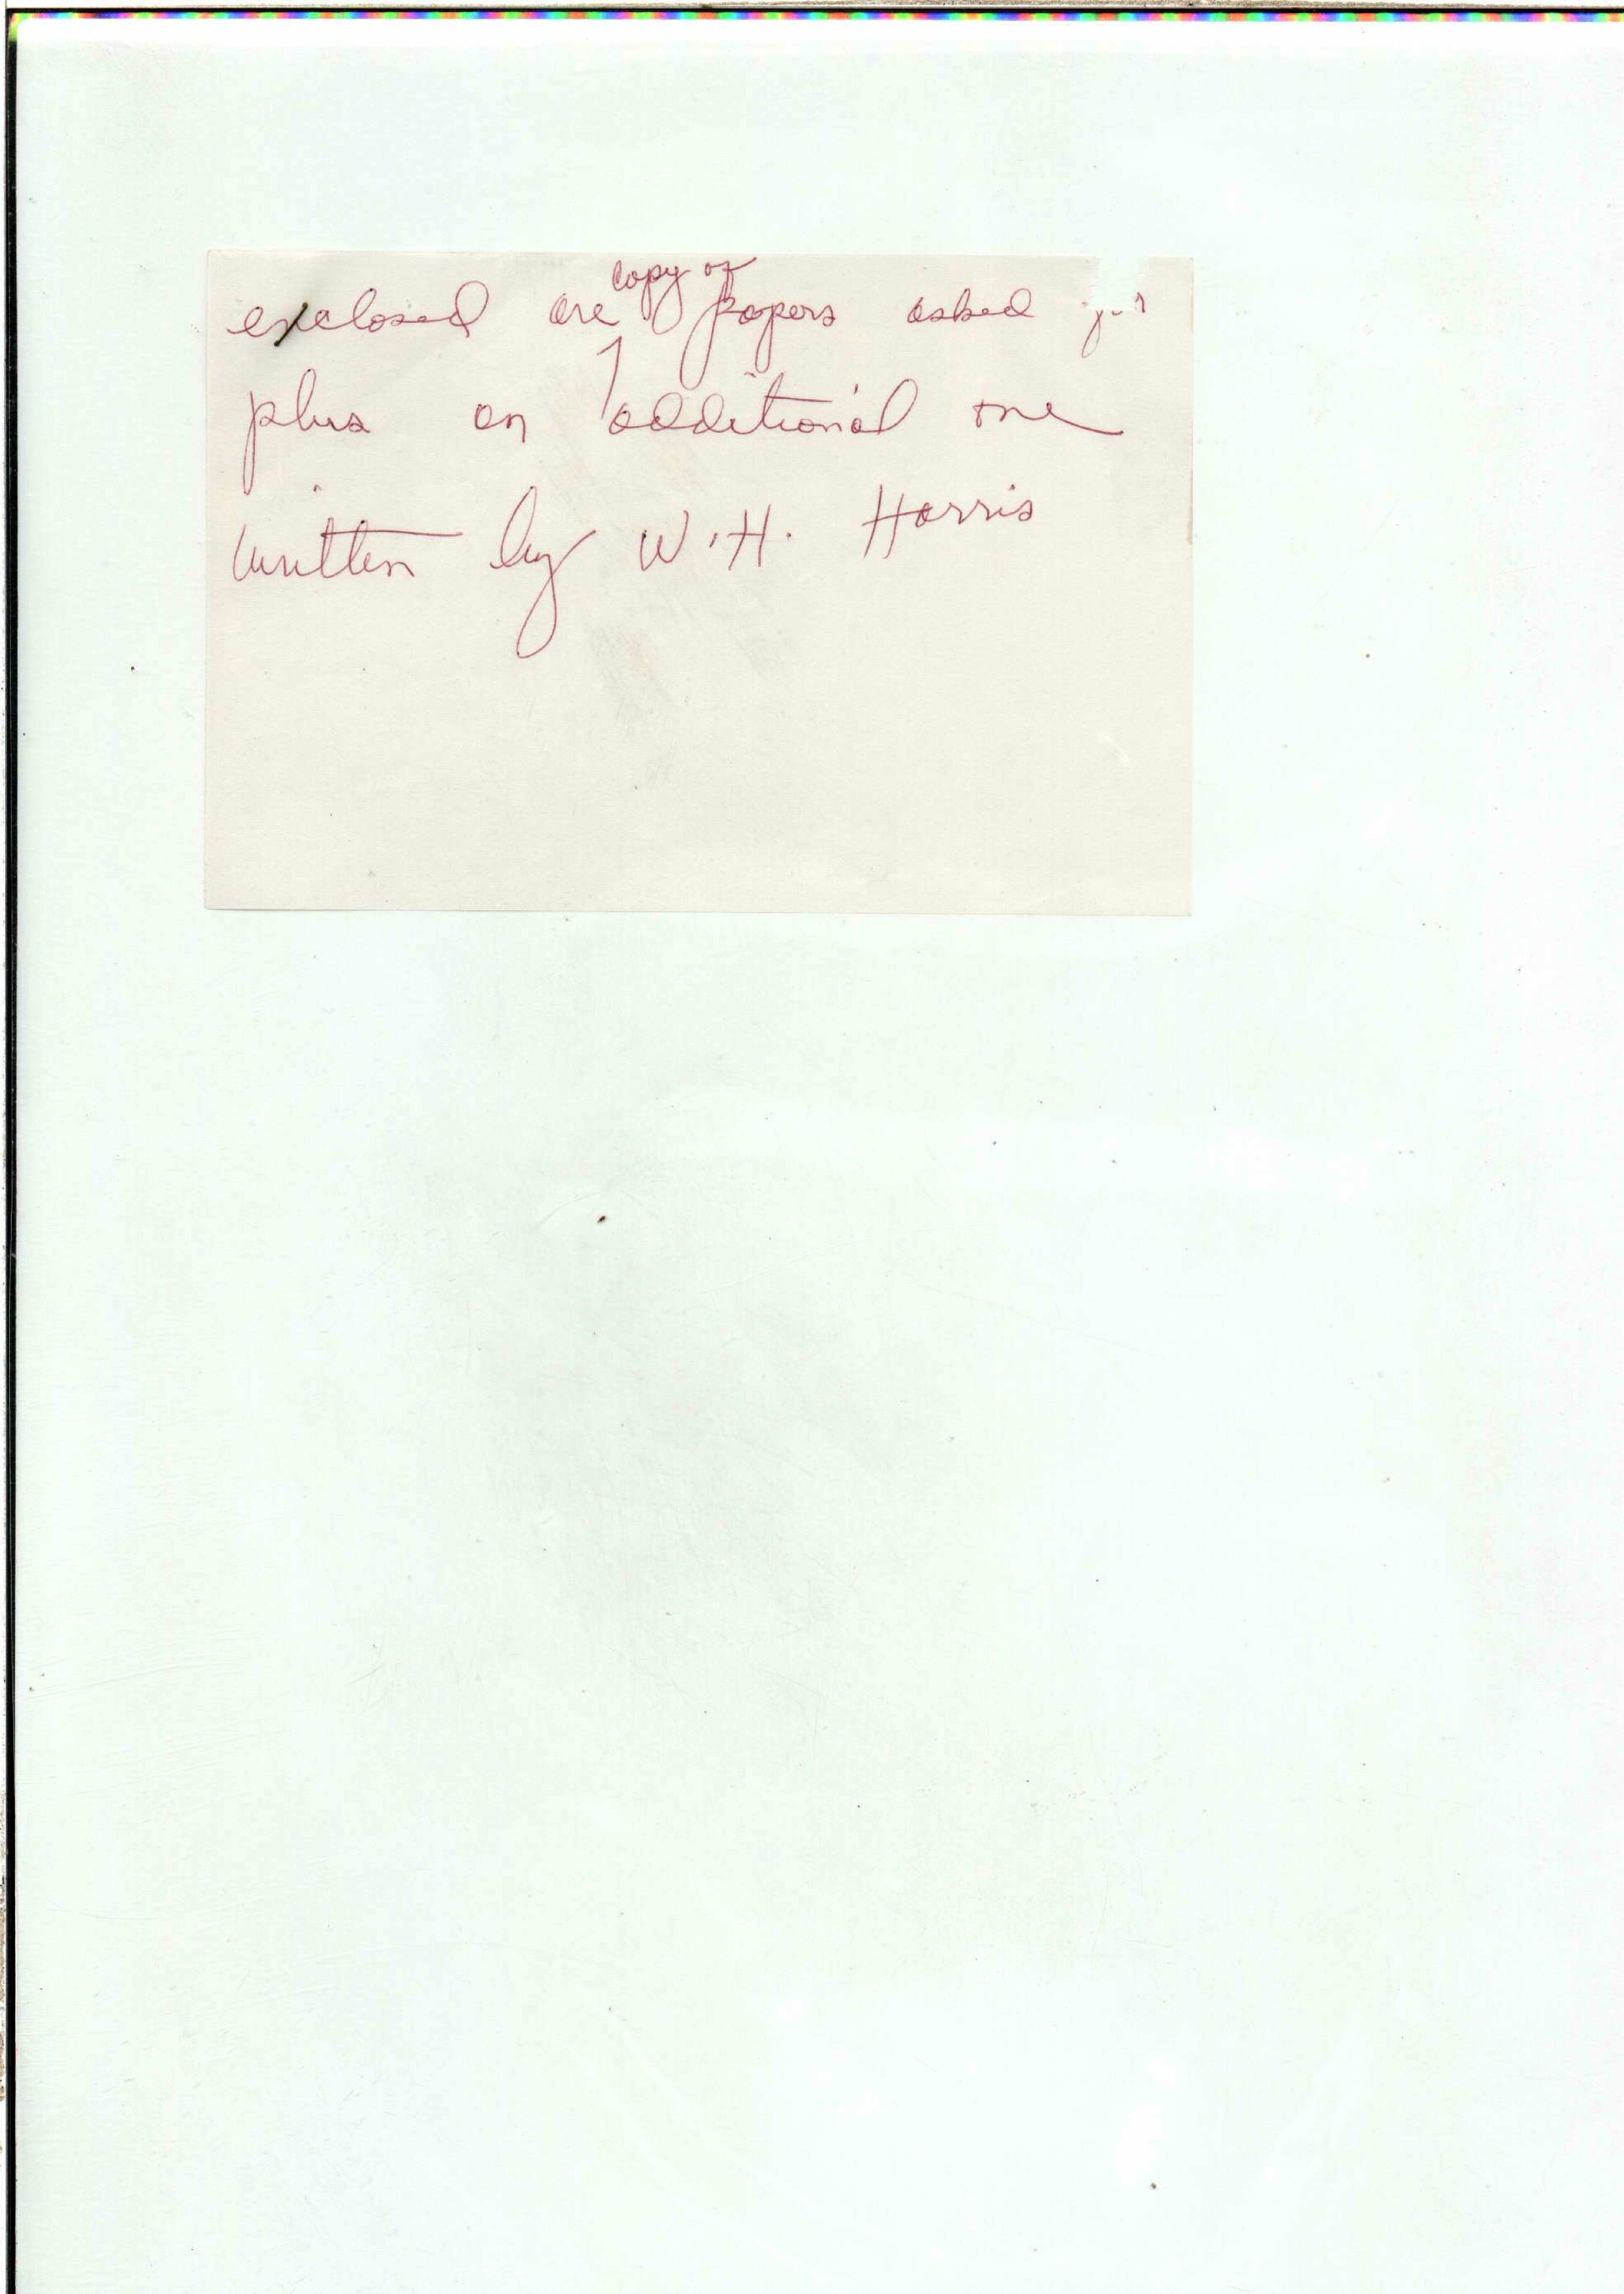 enclosed are copy of papers asked for
plus an additional one
written by W.H. Harris